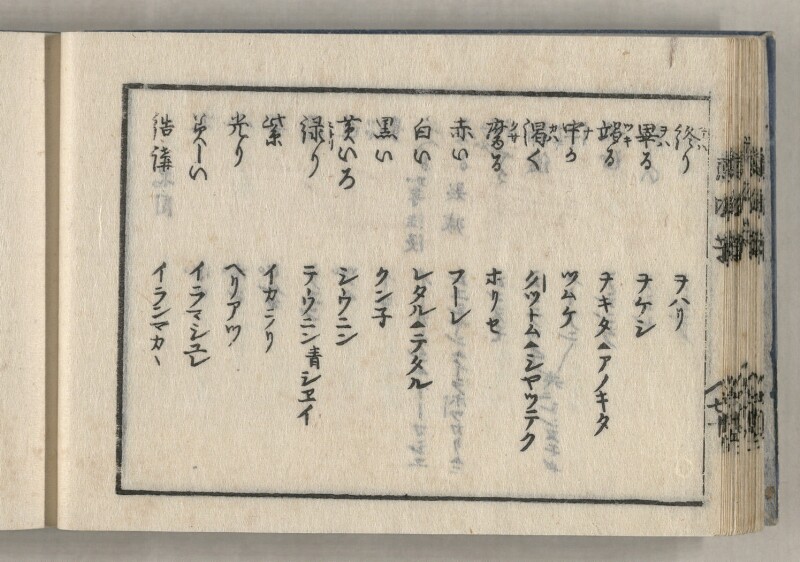 終り ヲハリ
畢る ヲケシ
竭る ヲキタ▲アノキタ
ツムケ
渇く クツトム▲シヤツテク
腐る ホリセ
赤い フーレ
白い レタル▲テタル
黒い クン子
黄いろ シウニン
緑り テウニン青シヱイ
紫 イカラリ
光り ヘリアツ
イラマシユレ
イランマカヽ